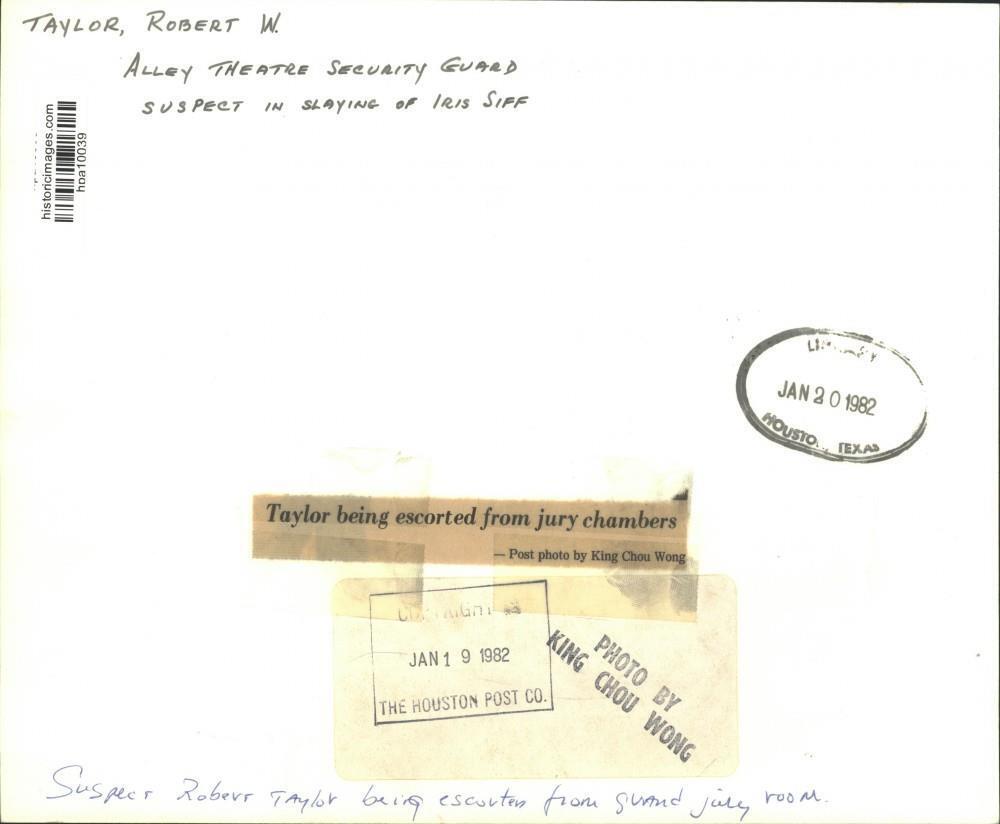 TAYLOR, ROBERT W.
ALLEY THEATRE SECURITY GUARD
SUSPECT IN SLAYING OF IRIS SIFF
historicimages.com
hpa10039
JAN 20 1982
TEXAS
Taylor being escorted from jury chambers
— Post photo by King Chou Wong
JAN 19 1982
THE HOUSTON POST CO.
PHOTO BY
KING CHOU WONG
Suspect Robert Taylor being escorted from grand jury room.